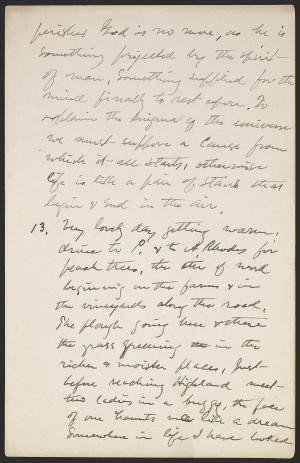 perishes God is no more, as he is
something projected by the spirit
of man, something supplied for the
mind finally to rest upon. To
explain the enigma of the universe
we must suppose a Cause from
which it all starts, otherwise
life is like a pair of stairs that
begin & end in the air.
13. Very lovely day getting warm,
drive to P. & to A. Rhodes for
peach trees, the stir of work
beginning on the farms & in
the vineyards along the road,
The plough going here & there
the grass greening in the
richer & moister places, Just
before reaching Highland meet
two ladies in a buggy, the face
of one haunts me like a dream
Somewhere in life I have looked